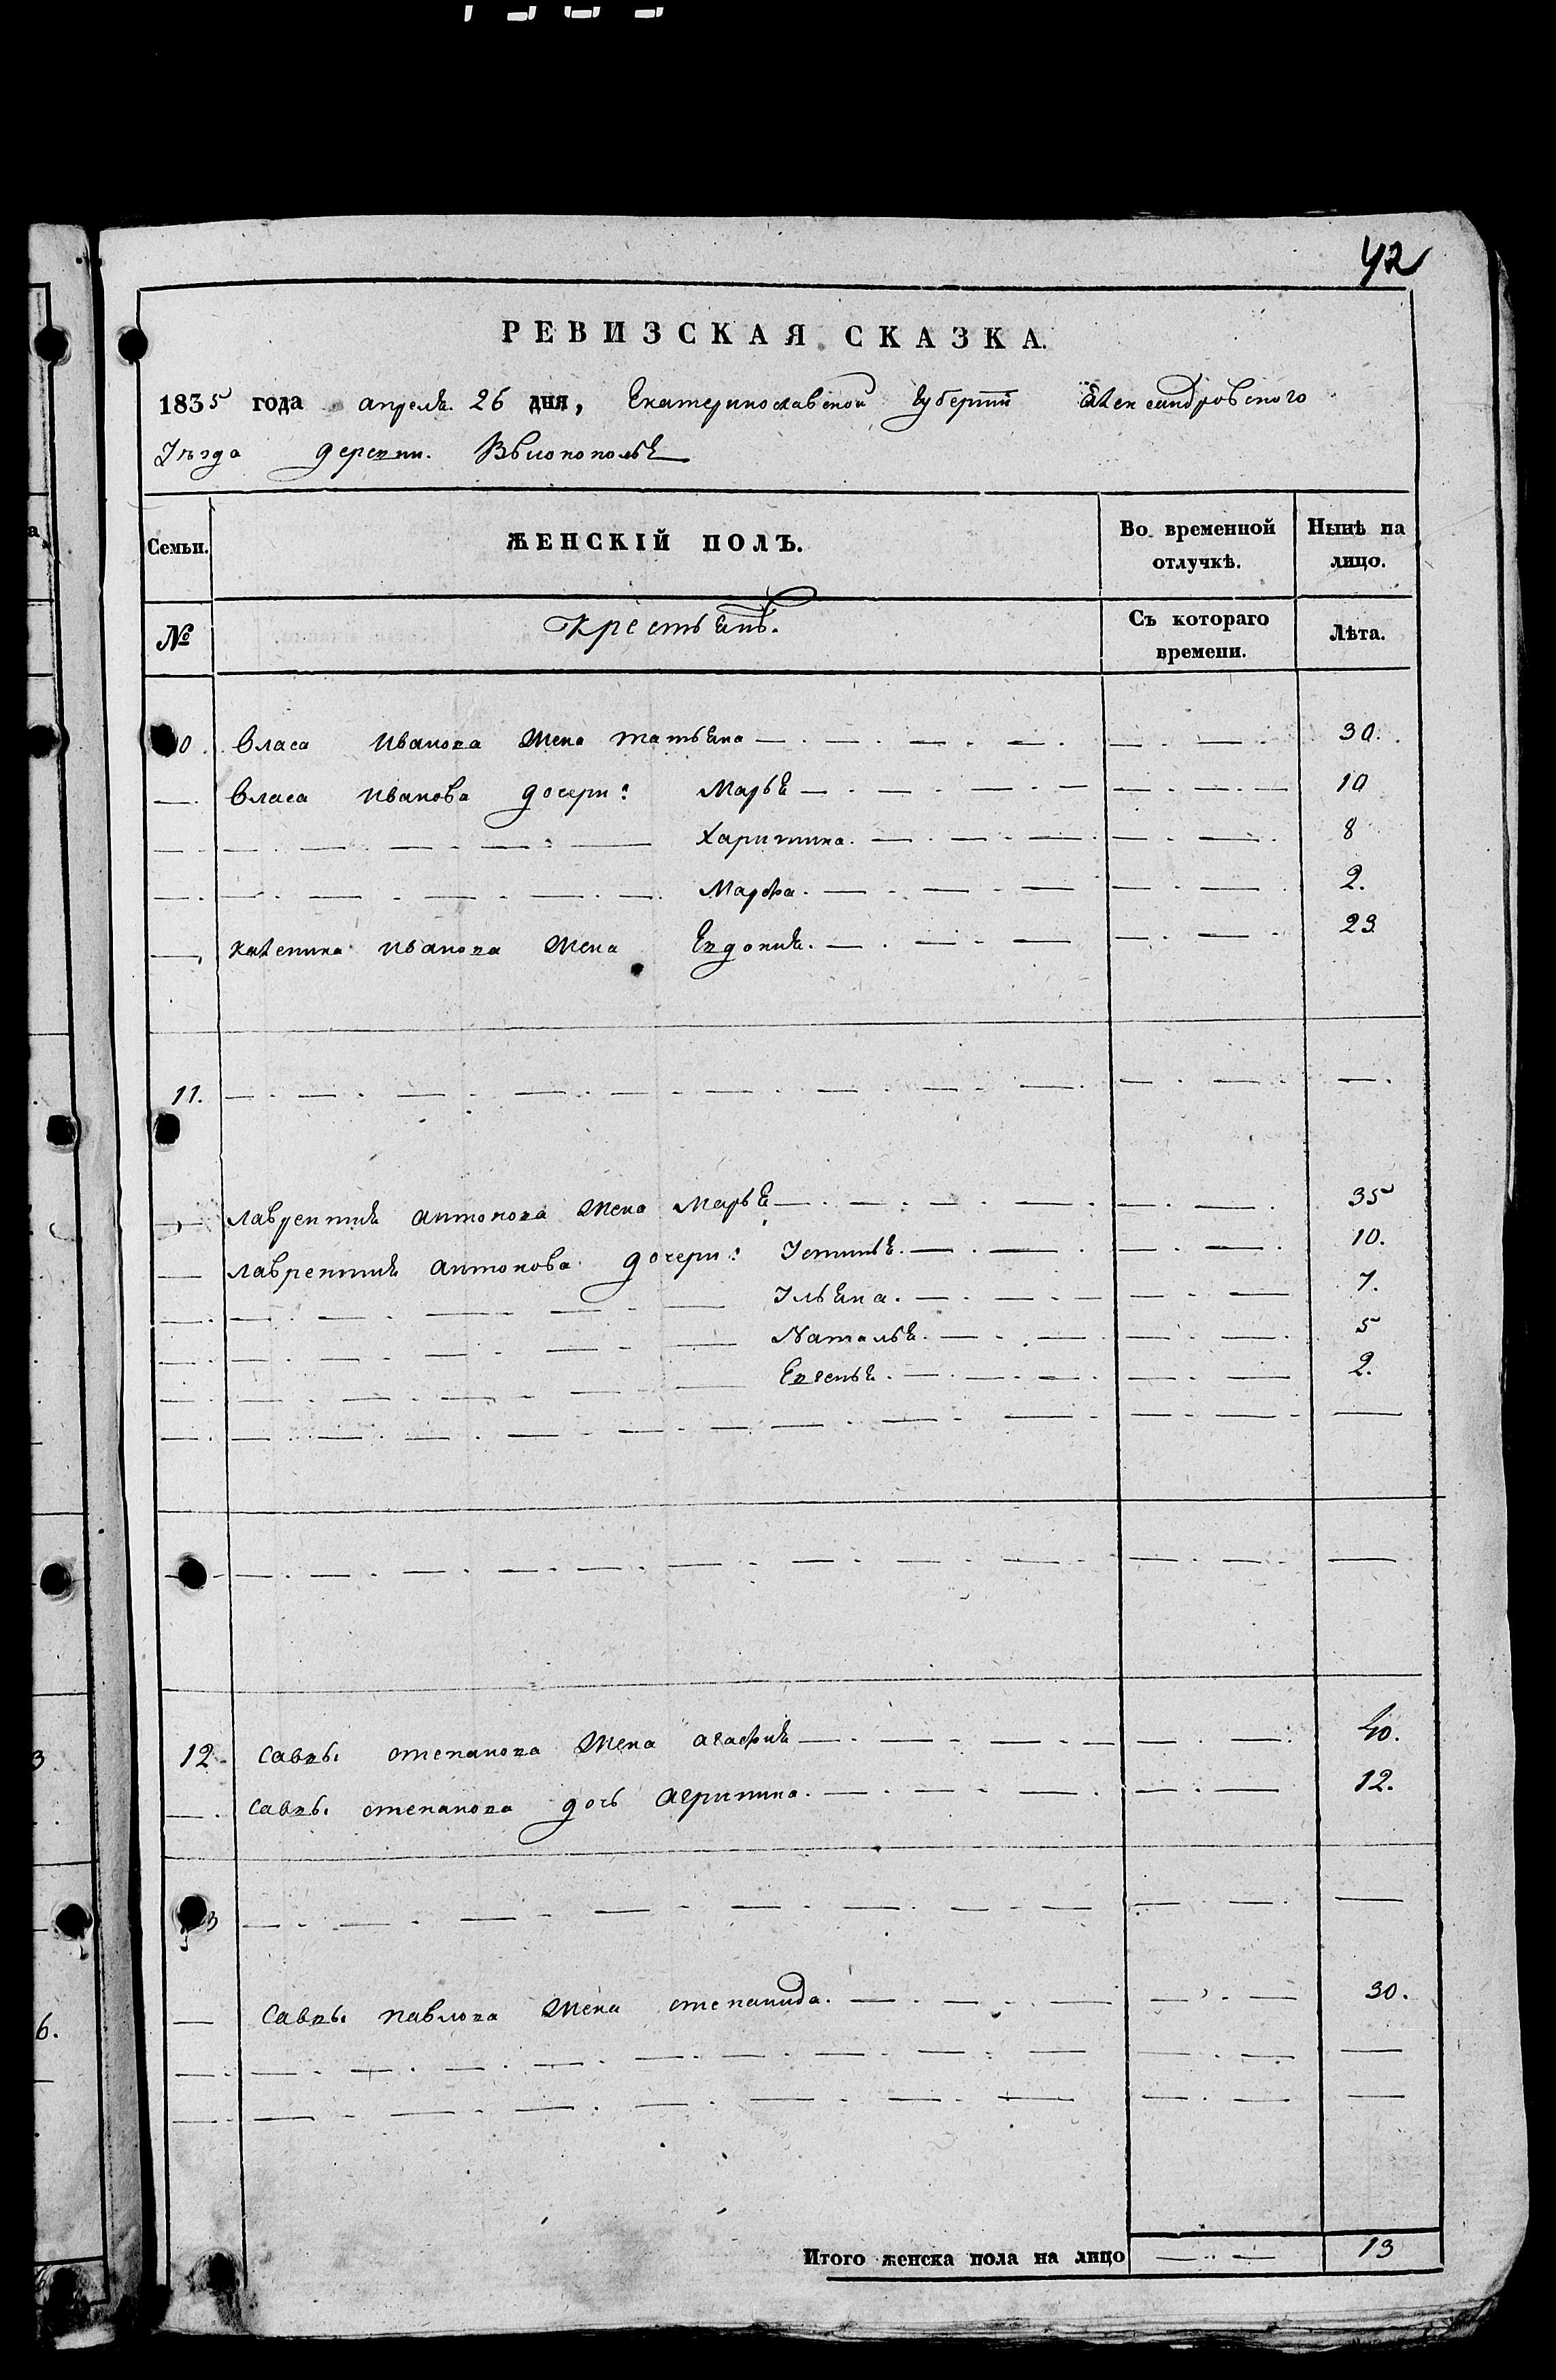 42
РЕВИЗСКАЯ СКАЗКА.
1835 года апреля 26 дня, Екатеринославской губернии Александровского
Уезда деревни
Семьи. ЖЕНСКІЙ ПОЛЪ. Во временной отлучкѣ. Нынѣ на лицо.
№ Крестьянъ. Съ котораго времени. Лѣта.
Власа Иванова жена татьяна 30.
Власа Иванова дочери: Марья 10
Харитина. 8
Марфа. 2.
Иванова жена Евдокия. 23
11.
Лаврентия антонова жена Марья 35
Лаврентия антонова дочери: Устинья. 10.
Ульяна. 7.
Наталья. 5
Евгенья. 2.
12. Савы. степанова жена агафия 40.
Савы. степанова дочь Агрипина. 12.
3
Савы. павлова жена степанида. 30.
Итого женска пола на лицо 13